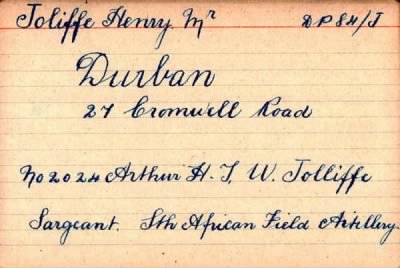 Joliffe Henry Mr DP84/J
Durban
27 Cromwell Road
No 2024 Arthur H. J. W. Jolliffe
Sargeant. Sth African Field Artillery.